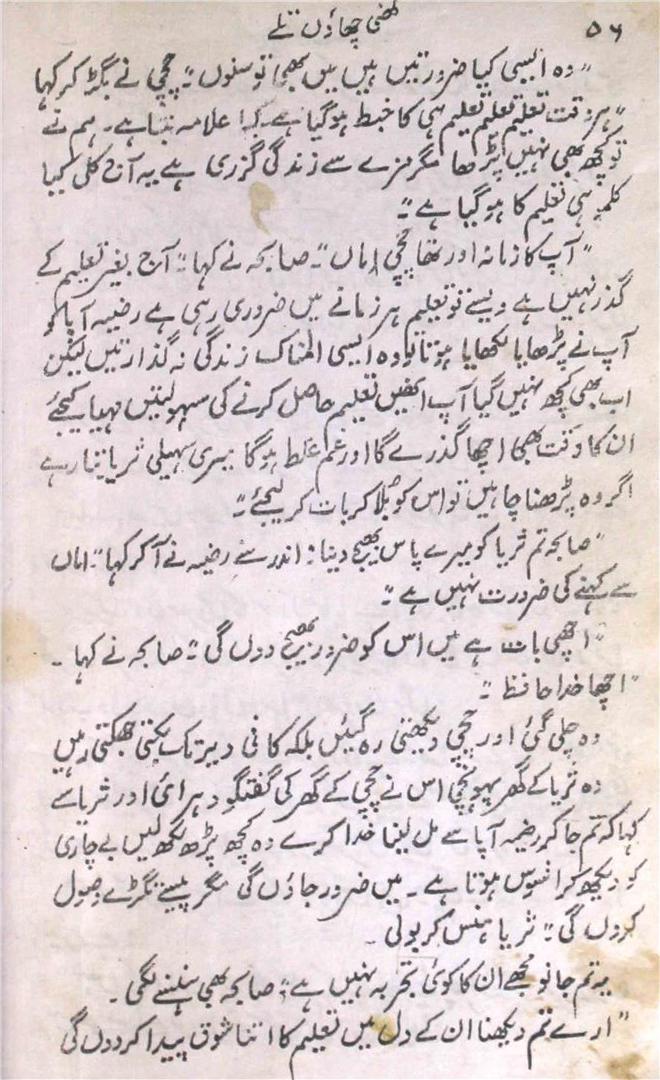 ۵۶
گھنی چھاؤں تلے
"وہ ایسی کیا ضرورتیں ہیں میں بھی تو سنوں"۔ چچی نے بگڑ کر کہا
"ہر وقت تعلیم تعلیم تعلیم ہی کا خبط ہو گیا ہے۔ علامہ بننا ہے۔ ہم نے
تو کچھ بھی نہیں پڑھا مگر مزے سے زندگی گزری ہے یہ آج کل کیا
کلمہ ہی تعلیم کا ہو گیا ہے"۔
"آپ کا زمانہ اور تھا چچی اماں"۔ صابحہ نے کہا "آج بغیر تعلیم کے
گذر نہیں ہے ویسے تو تعلیم ہر زمانے میں ضروری رہی ہے رضیہ آپا کو
آپ نے پڑھایا لکھایا ہوتا تو وہ ایسی المناک زندگی نہ گذارتیں لیکن
اب بھی کچھ نہیں گیا آپ انھیں تعلیم حاصل کرنے کی سہولتیں مہیا کیجئے
ان کا وقت بھی اچھا گذرے گا اور غم غلط ہوگا میری سہیلی ثریا
اگر وہ پڑھنا چاہیں تو اس کو بلا کر بات کر لیجئے"۔
"صابحہ تم ثریا کو میرے پاس بھیج دینا" اندر سے رضیہ نے آ کر کہا "اماں
سے کہنے کی ضرورت نہیں ہے"۔
"اچھی بات ہے میں اس کو ضرور بھیج دوں گی" صابحہ نے کہا۔
"اچھا خدا حافظ"۔
وہ چلی گئی اور چچی دیکھتی رہ گیئں بلکہ کافی دیر تک بکتی جھکتی رہیں
وہ ثریا کے گھر پہونچی اس نے چچی کے گھر کی گفتگو دہرائی اور ثریا سے
کہا کہ تم جا کر رضیہ آپا سے مل لینا خدا کرے وہ کچھ پڑھ لکھ لیں بے چاری
کو دیکھ کر افسوس ہوتا ہے۔ میں ضرور جاؤں گی مگر پیسے تگڑے وصول
کروں گی" ثریا ہنس کر بولی۔
یہ تم جانو مجھے ان کا کوئی تجربہ نہیں ہے" صابحہ بھی ہنسنے لگی۔
"ارے تم دیکھنا ان کے دل میں تعلیم کا اتنا شوق پیدا کر دوں گی